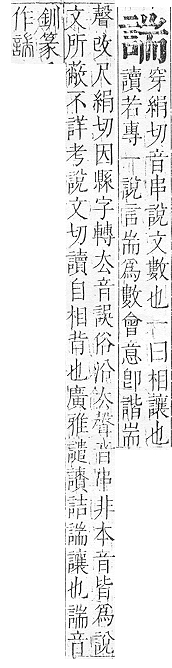 諯
穿絹切音串說文數也一曰相讓也
讀若專一說言耑爲數會意卽諧耑
聲改尺絹切因縣字轉厺音誤俗沿厺聲音串非本音皆爲說
文所蔽不詳考說文切讀自相背也廣雅譴讀詰諯讓也諯音
釧篆
作諯